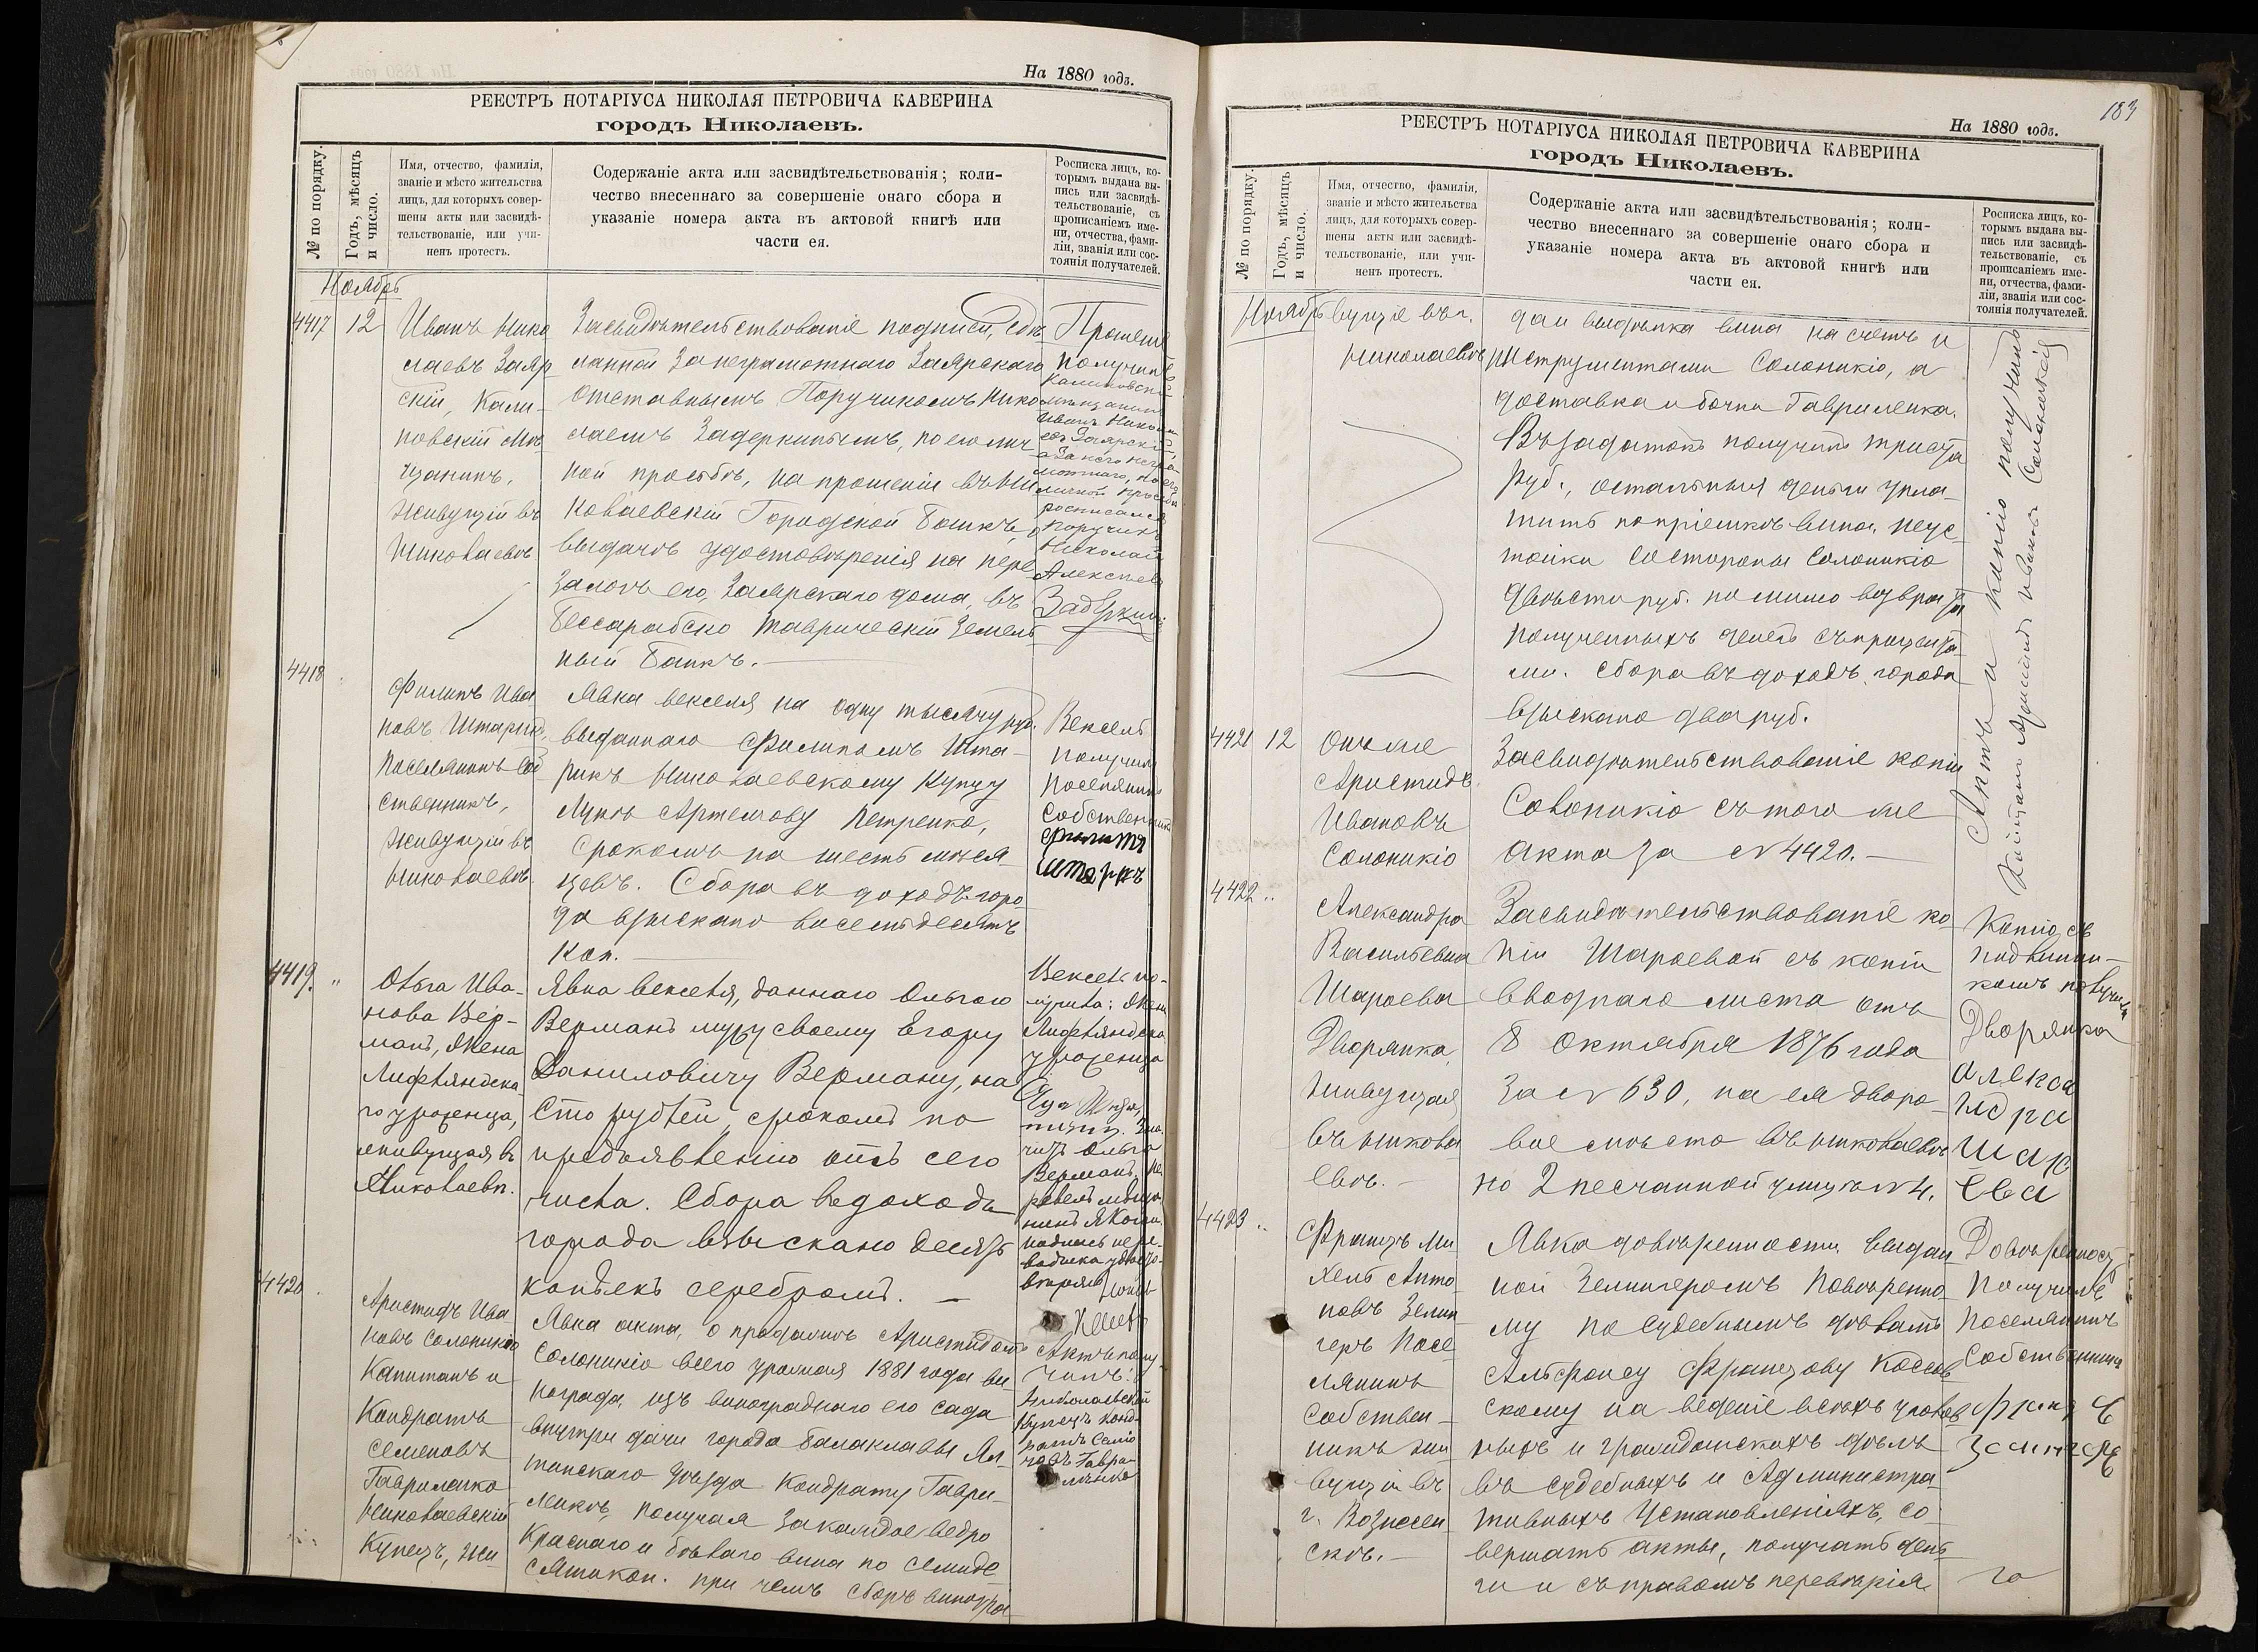 На 1880 годъ.
РЕЕСТРЪ НОТАРІУСА НИКОЛАЯ ПЕТРОВИЧА КАВЕРИНА
городъ Николаевъ.
№ по порядку.
Годъ, мѣсяцъ
и число.
Имя, отчество, фамилія,
званіе и мѣсто жительства
лицъ, для которыхъ совер-
шены акты или засвидѣ-
тельствованіе, или учи-
ненъ протестъ.
Содержаніе акта или засвидѣтельствованія; коли-
чество внесеннаго за совершеніе онаго сбора и
указаніе номера акта въ актовой книгѣ или
части ея.
Росписка лицъ, ко-
торымъ выдана вы-
пись или засвидѣ-
тельствованіе, съ
прописаніемъ име-
ни, отчества, фами-
ліи, званія или сос-
тоянія получателей.
Ноябрь
4417
12
Иванъ Нико
лаевъ Заяр
скій, Кали-
новскій мѣ
щанинъ,
живущій въ
Николаевѣ
Засвидѣтельствованіе подписи, сдѣ
ланной за неграмотнаго Заярскаго
отставнымъ Поручикомъ Нико
лаемъ Задеркинымъ, по его лич
ной просьбѣ, на прошеніи въ Ни
колаевскій Городской Банкъ,
выдачѣ удостовѣренія на пере
залогъ его, Заярскаго дома, въ
Бессарабско Таврическій Земель
ный Банкъ.
Прошеніе
получилъ
Калиновскій
мѣщанинъ
Иванъ Никола
евъ Заярскій,
а за него негра
мотнаго, по его
личной просьбѣ
росписался
Поручикъ
Николай
Алексѣевъ
4418
Филипъ Ива
новъ Штаркъ,
поселянинъ соб
ственникъ,
живущій въ
Николаевѣ
Явка векселя на одну тысячу руб.
выданнаго Филипомъ Шта-
ркъ Николаевскому Купцу
Лукѣ Артемову Петренко,
срокомъ на шесть мѣся
цевъ. Сбора въ доходъ горо
да взыскано восемьдесятъ
коп.
Вексель
получилъ
поселянинъ
собственникъ
Филиппъ
Штаркъ
4419.
"
Ольга Ива-
нова Вер-
манъ, жена
Лифляндска
го уроженца,
живущая въ
Николаевѣ.
Явка векселя, даннаго Ольгою
Верманъ мужу своему Егору
Даниловичу Верману, на
сто рублей, срокомъ по
предъявленію отъ сего
числа. Сбора въ доходъ
города взыскано десять
копѣекъ серебромъ.
Вексель по-
лучила: жена
Лифляндска
уроженца
Ольга
Верманъ, пе
ревелъ мѣща
нинъ
подпись пере
4420
Аристидъ Ива
новъ Солоникіо
Капитанъ и
Кондратъ
Семеновъ
Гавриленко
Николаевскій
Купецъ, жи-
Явка акта, о продажѣ Аристидомъ
Солоникіо всего урожая 1881 года ви-
нограда, изъ винограднаго его сада
внутри дачи города Балаклавы Ял
тинскаго уѣзда Кондрату Гаври-
ленкѣ, получая за каждое ведро
краснаго и бѣлаго вина по семиде
сяти коп. при чемъ сборъ виногра
Актъ полу
чилъ:
Николаевскій
Купецъ Конд-
ратъ Семіо
новъ Гаври-
ленко
183
На 1880 годъ.
РЕЕСТРЪ НОТАРІУСА НИКОЛАЯ ПЕТРОВИЧА КАВЕРИНА
городъ Николаевъ.
№ по порядку.
Годъ, мѣсяцъ
и число.
Имя, отчество, фамилія,
званіе и мѣсто жительства
лицъ, для которыхъ совер-
шены акты или засвидѣ-
тельствованіе, или учи-
ненъ протестъ.
Содержаніе акта или засвидѣтельствованія; коли-
чество внесеннаго за совершеніе онаго сбора и
указаніе номера акта въ актовой книгѣ или
части ея.
Росписка лицъ, ко-
торымъ выдана вы-
пись или засвидѣ-
тельствованіе, съ
прописаніемъ име-
ни, отчества, фами-
ліи, званія или сос-
тоянія получателей.
Ноябрь
вущіе въ г.
Николаевѣ
да и выдѣлка вина на счетъ и
инструментами Солоникіо, а
доставка и бочки Гавриленка.
Въ задатокъ получилъ триста
руб., остальныя деньги упла-
тить по пріемкѣ вина, неус-
тойки со стороны Солоникіо
двѣсти руб. помимо возврата
полученныхъ денегъ съ процента
ми. Сбора въ доходъ города
взыскано два руб.
Актъ и копію получилъ
Капитанъ Аристидъ Ивановъ Солоникіо
4421
12
Онъ же
Аристидъ
Ивановъ
Солоникіо
Засвидѣтельствованіе копіи
Солоникіо съ того же
акта за № 4420.
4422
"
Александра
Васильевна
Шароева
Дворянка,
живущая
въ Никола
евѣ.
Засвидѣтельствованіе ко
піи Шароевой съ копіи
вводнаго листа отъ
8 Октября 1876 года
за № 630, на ея дворо-
вое мѣсто въ Николаевѣ
по 2 песчанной улицѣ № 4.
Копію съ
подлинни-
комъ получила
Дворянка
Алекса
ндра
Шаро
ева
4423
"
Францъ Ми
хель Анто
новъ Зелин
геръ Посе
лянинъ
собствен-
никъ жи
вущій въ
г. Вознесен
скѣ.
Явка довѣренности, выдан
ной Зелингеромъ Повѣренно
му по судебнымъ дѣламъ
Альфонсу Францову Коссов
скому на веденіе всѣхъ уголов
ныхъ и гражданскихъ дѣлъ
въ судебныхъ и Администра
тивныхъ Установленіяхъ, со
вершать акты, получать день
ги и съ правомъ передовѣрія
Довѣренность
получилъ
поселянинъ
собственникъ
Францъ